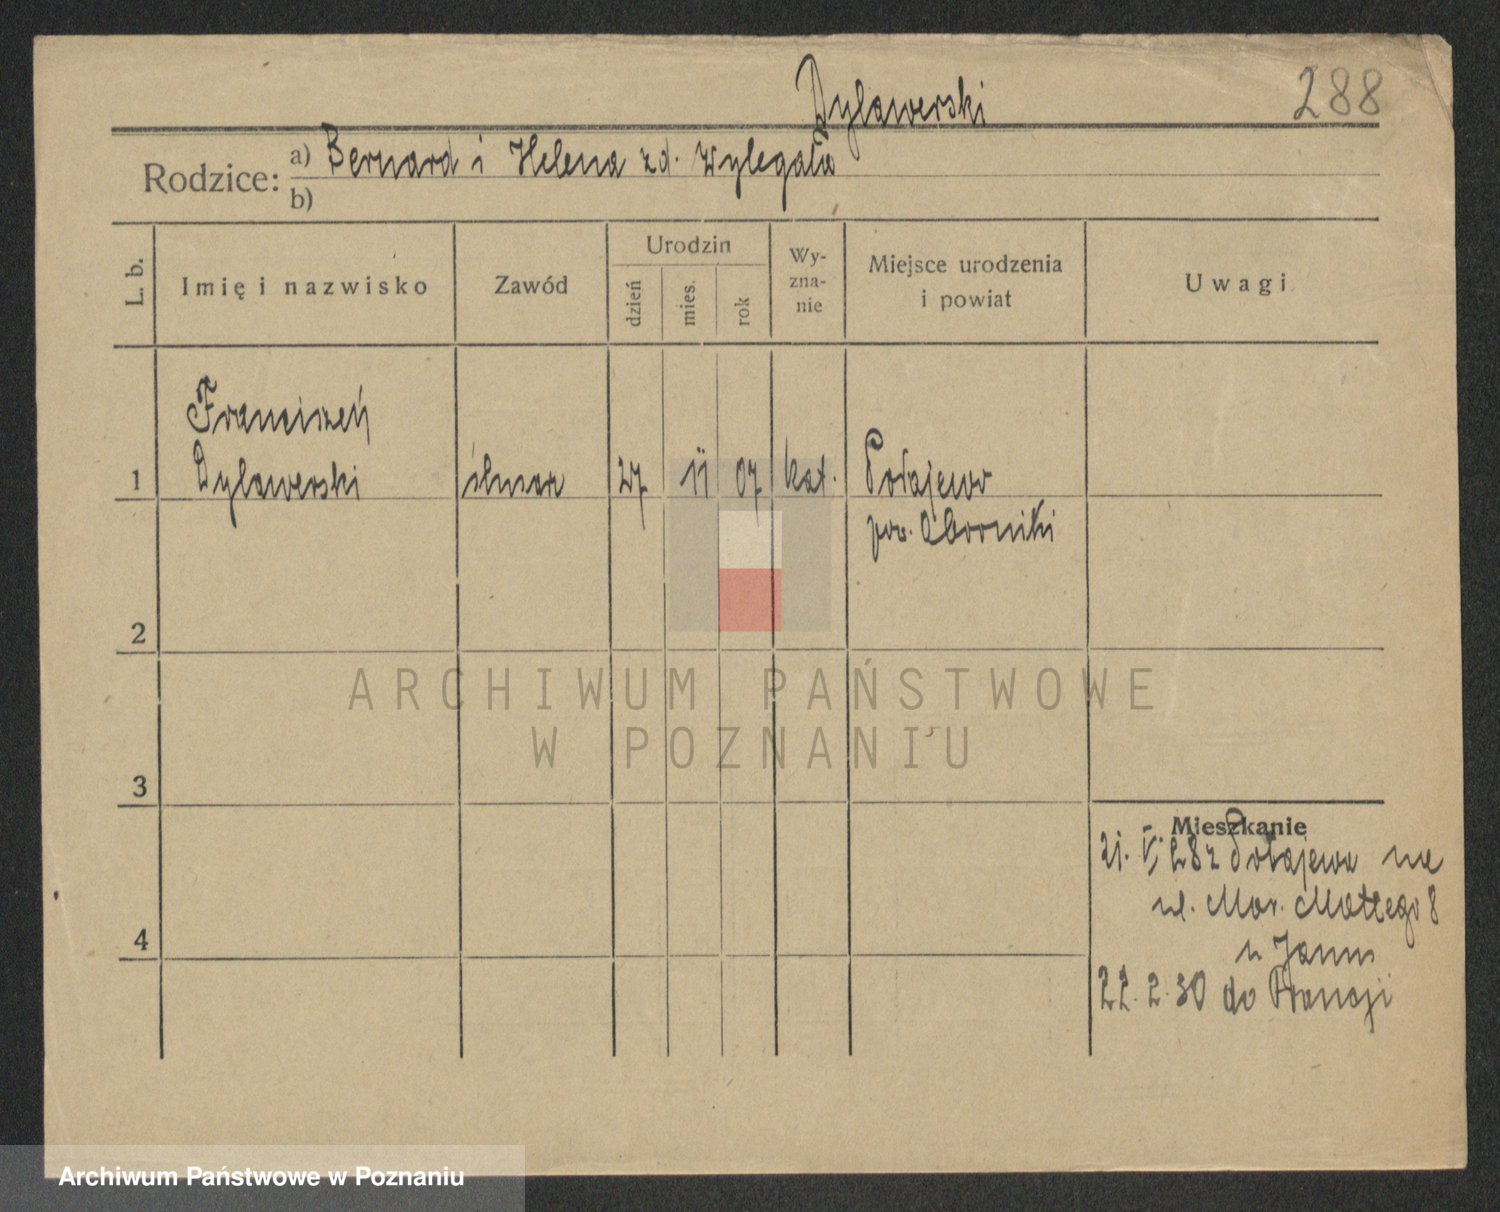 Dylawerski
288
Rodzice: a) Bernard i Helena zd. Wylegała
b)
L. b. Imię i nazwisko Zawód Urodzin dzień mies. rok Wy-zna-nie Miejsce urodzenia i powiat Uwagi
Franciszek
1 Dylawerski ślusarz 27 11 07 kat. Połajewo
pow. Oborniki
2
ARCHIWUM PAŃSTWOWE
W POZNANIU
3
Mieszkanie
21. V. 28 z Połajewa na
ul. Mar. 8
4
22. 2. 30 do Francji
Archiwum Państwowe w Poznaniu